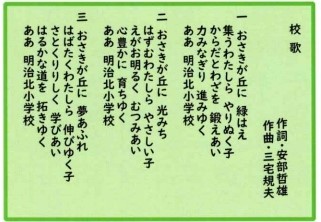 校歌
作詞・安部哲雄
作曲・三宅規夫
一 おさきが丘に 緑はえ
集うわたしら やりぬく子
からだとわざを 鍛えあい
力みなぎり 進みゆく
ああ 明治北小学校
二 おさきが丘に 光みち
はずむわたしら やさしい子
えがお明るく むつみあい
心豊かに 育ちゆく
ああ 明治北小学校
三 おさきが丘に 夢あふれ
はばたくわたしら 伸びゆく子
さとくりりしく 学びあい
はるかな道を 拓きゆく
ああ 明治北小学校